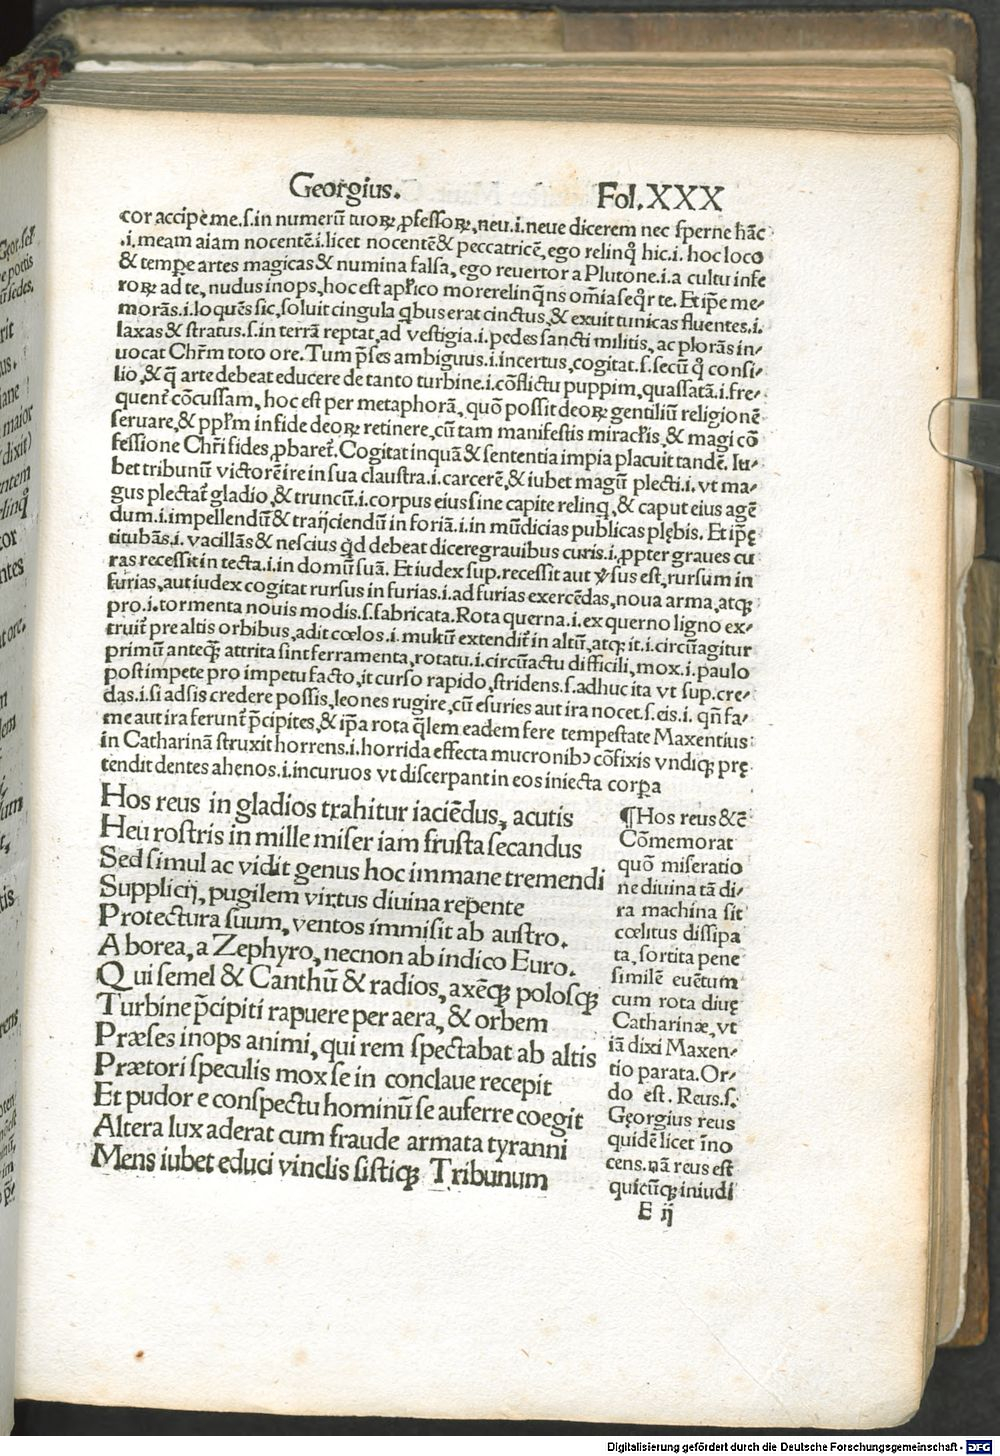 Georgius. Fol. XXX
cor accipe me. s. in numerũ tuoꝝ, ꝓfessoꝝ, neu. i. neue dicerem nec sperne hãc
. i. meam aĩam nocentẽ. i. licet nocentẽ & peccatricẽ, ego relinqͦ hic. i. hoc loco
& tempe artes magicas & numina falsa, ego reuertor a Plutone. i. a cultu infe
roꝝ ad te, nudus inops, hoc est apl̃ico more relinq̃ns om̃ia seqͦr te. Et ip̃e me⸗
morãs. i. loquẽs sic, soluit cingula qͥbus erat cinctus, & exuit tunicas fluentes. i.
laxas & stratus. s. in terrã reptat, ad vestigia. i. pedes sancti militis, ac plorãs in⸗
uocat Chr̃m toto ore. Tum p̃ses ambiguus. i. incertus, cogitat. s. secũ qͦ consi⸗
lio, & q̃ arte debeat educere de tanto turbine. i. cõflictu puppim, quassatã. i. fre⸗
quent̃ cõcussam, hoc est per metaphorã, quõ possit deoꝝ gentiliũ religionẽ
seruare, & ppl̃m in fide deoꝝ retinere, cũ tam manifestis miracl̃is, & magi cõ
fessione Chr̃i fides, ꝓbaret̃. Cogitat inquã & sententia impia placuit tandẽ. Iu⸗
bet tribunũ victorẽ ire in sua claustra. i. carcerẽ, & iubet magũ plecti. i. vt ma⸗
gus plectat̃ gladio, & truncũ. i. corpus eius sine capite relinq̃, & caput eius agẽ
dum. i. impellendũ & traijciendũ in foriã. i. in mũdicias publicas plębis. Et ip̃ę
titubãs. i. vacillãs & nescius qͥd debeat dicere grauibus curis. i. ꝓpter graues cu
ras recessit in tecta. i. in domũ suã. Et iudex sup. recessit aut ꝟsus est, rursum in
furias, aut iudex cogitat rursus in furias. i. ad furias exercẽdas, noua arma, atqꝫ
pro. i. tormenta nouis modis. s. fabricata. Rota querna. i. ex querno ligno ex⸗
truit̃ pre altis orbibus, adit cœlos. i. multũ extendit̃ in altũ, atqꝫ it. i. circũagitur
primũ anteqꝫ attrita sint ferramenta, rotatu. i. circũactu difficili, mox. i. paulo
post impete pro impetu facto, it curso rapido, stridens. s. adhuc ita vt sup. cre⸗
das. i. si adsis credere possis, leones rugire, cũ esuries aut ira nocet. s. eis. i. qñ fa⸗
me aut ira ferunt̃ p̃cipites, & ip̃a rota q̃lem eadem fere tempestate Maxentius
in Catharinã struxit horrens. i. horrida effecta mucronibꝰ cõfixis vndiqꝫ prę
tendit dentes ahenos. i. incuruos vt discerpant in eos iniecta corpa
Hos reus in gladios trahitur iaciẽdus, acutis
Heu rostris in mille miser iam frusta secandus
Sed simul ac vidit genus hoc immane tremendi
Supplicij, pugilem virtus diuina repente
Protectura suum, ventos immisit ab austro.
A borea, a Zephyro, necnon ab indico Euro.
Qui semel & Canthũ & radios, axẽqꝫ polosqꝫ
Turbine p̃cipiti rapuere per aera, & orbem
Præses inops animi, qui rem spectabat ab altis
Prætori speculis mox se in conclaue recepit
Et pudor e conspectu hominũ se auferre coegit
Altera lux aderat cum fraude armata tyranni
Mens iubet educi vinclis sistiqꝫ Tribunum
¶Hos reus &c̃
Cõmemorat
quõ miseratio
ne diuina tã di⸗
ra machina sit
cœlitus dissipa
ta, sortita pene
similẽ euẽtum
cum rota diuę
Catharinæ, vt
iã dixi Maxen⸗
tio parata. Or⸗
do est. Reus. s.
Gęorgius reus
quidẽ licet ĩno
cens. nã reus est
quicũqꝫ in iudi
E ij
Digitalisierung gefördert durch die Deutsche Forschungsgemeinschaft - DFG